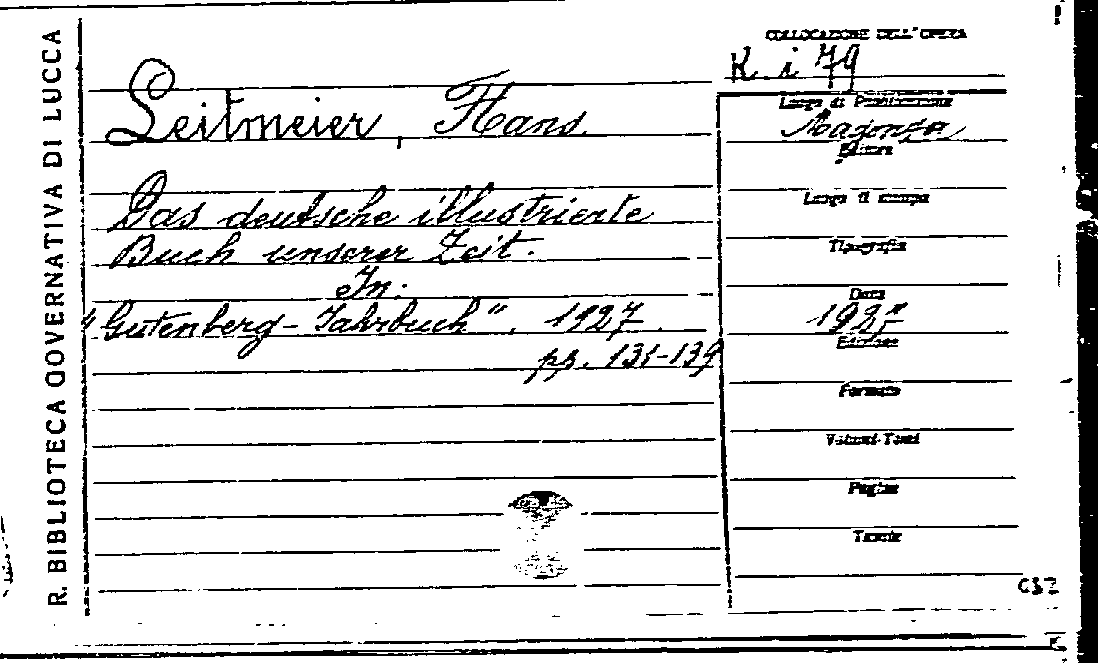 R. BIBLIOTECA GOVERNATIVA DI LUCCA
COLLOCAZIONE DELL'OPERA
K. i 79
Leitmeier, Hans
Das deutsche illustrierte
Buch unserer Zeit.
In:
"Gutenberg-Jahrbuch". 1927.
pp. 131-139
Luogo di Pubblicazione
Magonza
Editore
Luogo di stampa
Tipografia
Data
1927
Edizione
Formato
Volumi-Tomi
Pagine
Tavole